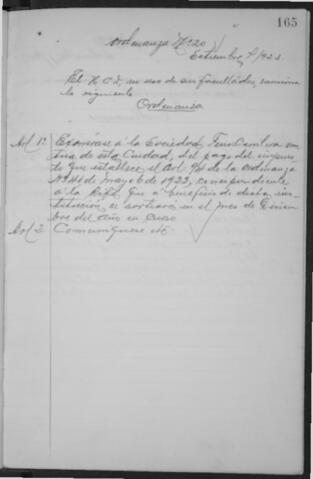 165
Ordenanza Nº 20
Setiembre 7/923
El H. C. D. en uso de sus facultades, sanciona
la siguiente
Ordenanza
Art 1º Exonérase á la Sociedad
tina de esta Ciudad, del pago del impues-
to que establece el Art. 9º de la Ordenanza
de Mayo 6 de 1922, correspondiente
á la Rifa, que a beneficio de dicha ins-
titución, se sorteará en el mes de Diciem-
bre del año en curso
Art 2 Comuníquese etc.